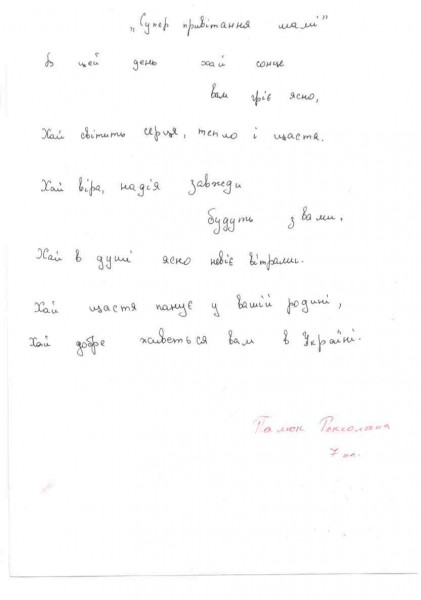 „Супер привітання мамі"
В цей день хай сонце
вам гріє ясно,
Хай світить серця, тепло і щастя.
Хай віра, надія завжди
будуть з вами.
Хай в душі ясно невіє вітрами.
Хай щастя панує у вашій родині,
Хай добре живеться вам в Україні.
Палюк Роксолана
7 кл.